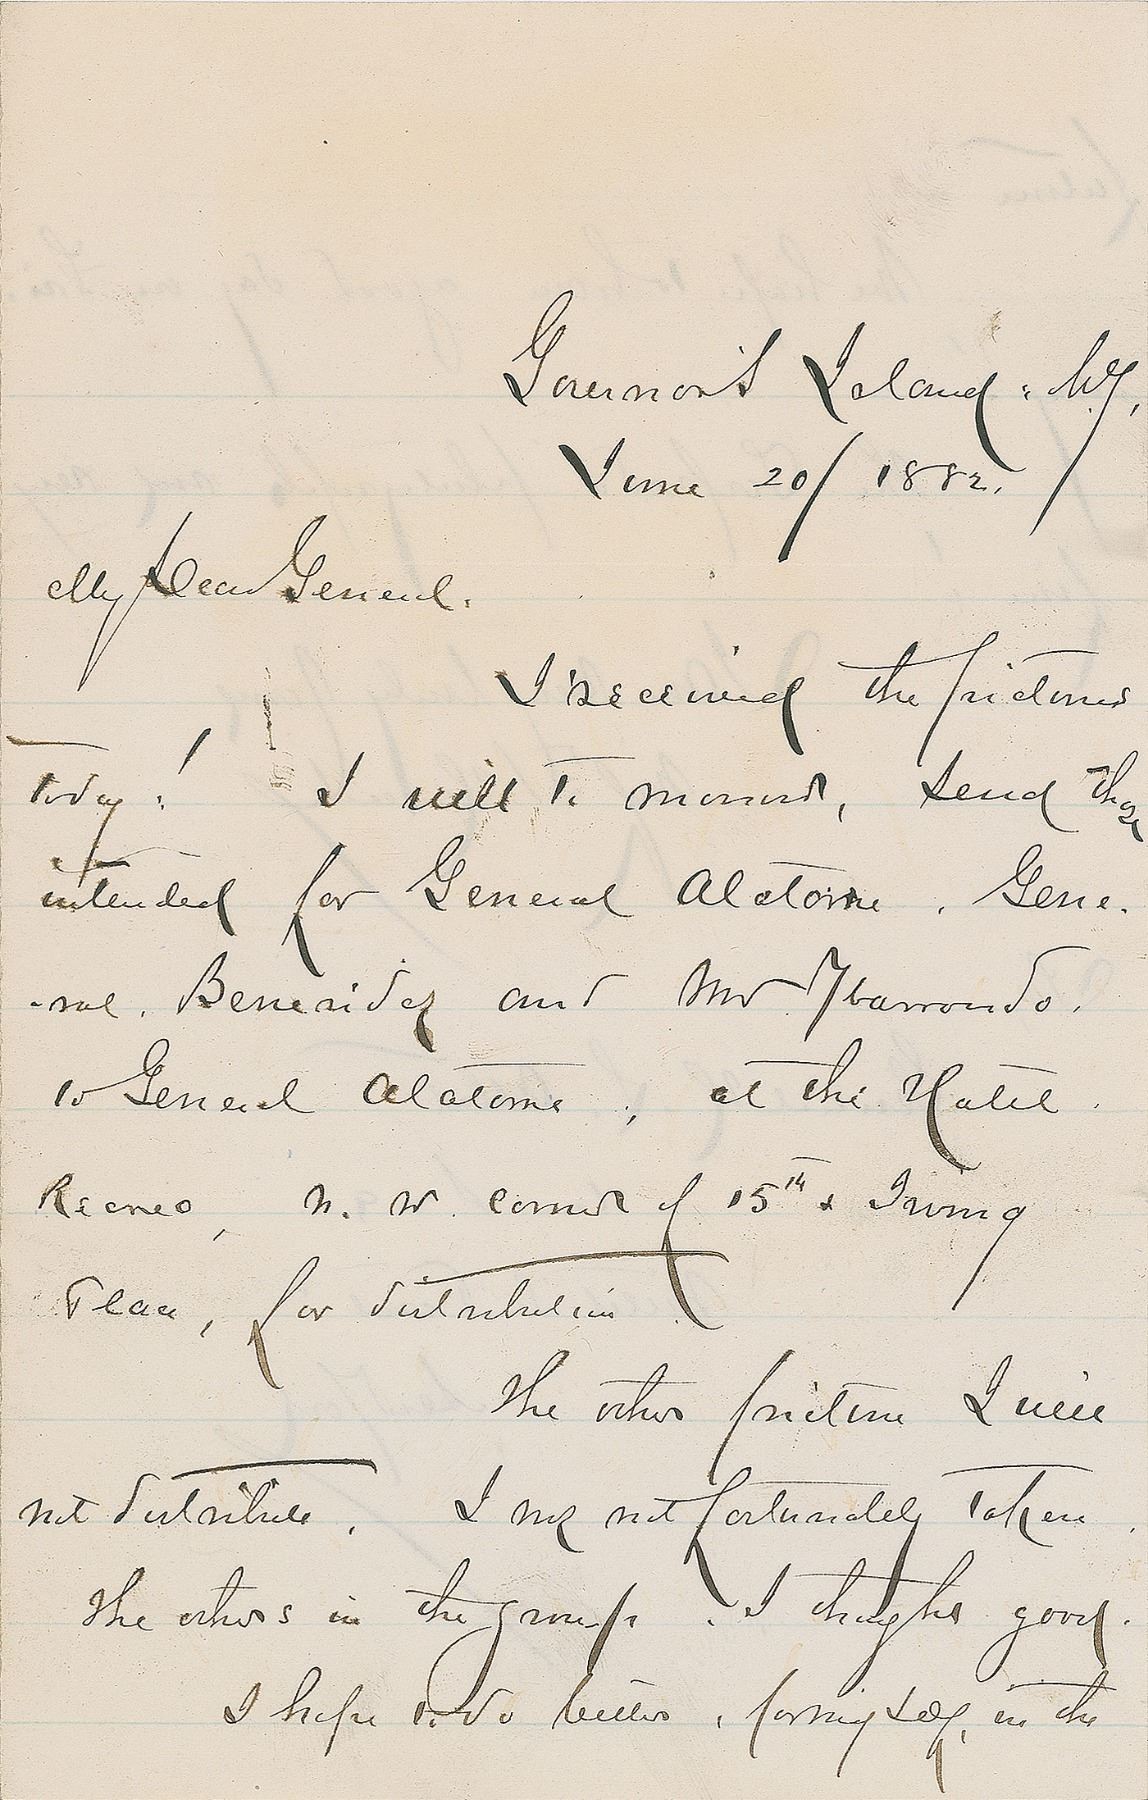 Governor's Island, N.Y,
June 20/ 1882.
My Dear General.
I received the pictures
today! I will To morrow, send those
intended for General Alatorre, Gene-
-ral. Benavidez and Mr Ybarrondo.
to General Alatorre, at the Hotel
Recreo, N. W. corner of 15th & Irving
Place, for distribution.
The other picture I will
not distribute. I was not fortunately taken.
The others in the group, I thought good.
I hope to do better, for myself, in the